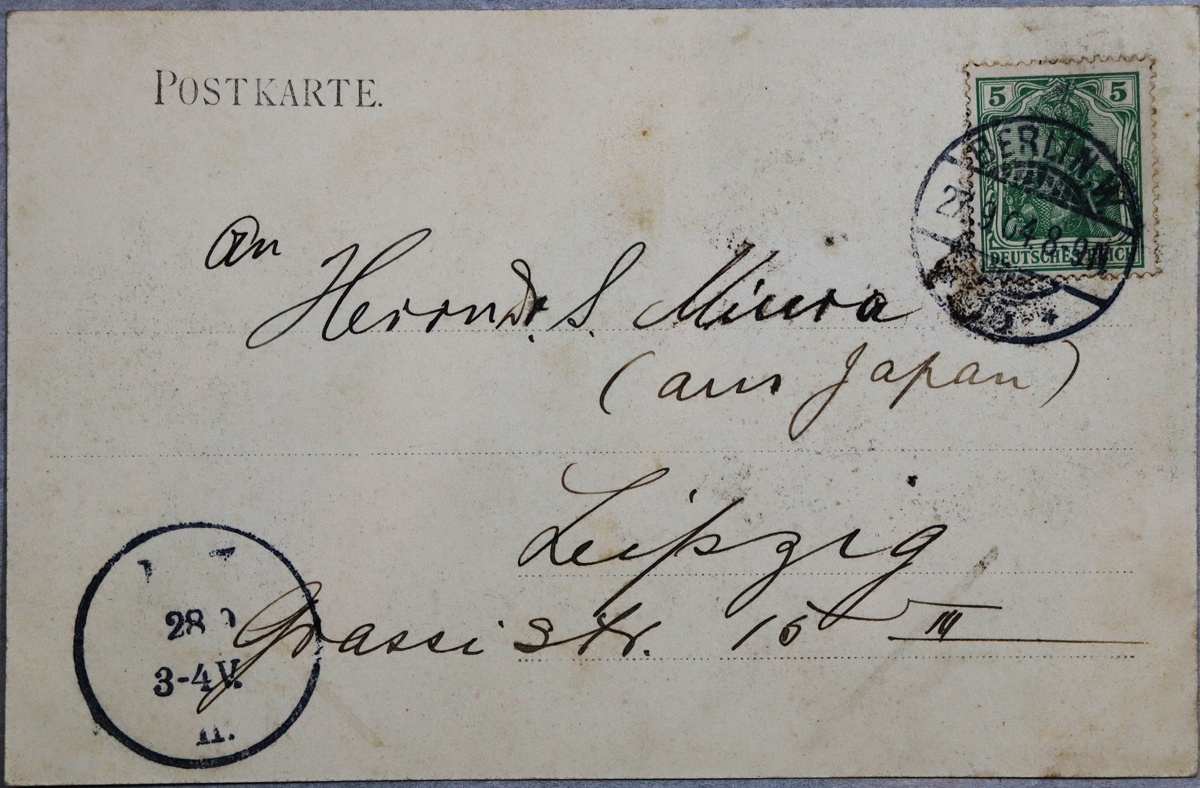 POSTKARTE.
5 5
BERLIN.
9 04 8-9N
DEUTSCHES REICH
An
Herrn Dr. S. Miura
(aus Japan)
Leipzig
Grassistr. 15 III
28
3-4V.